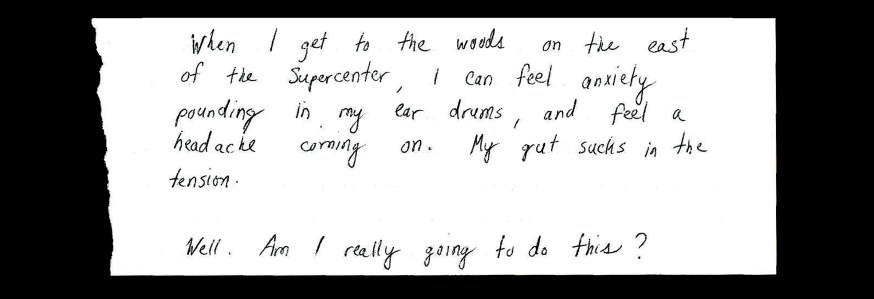 When I get to the woods on the east
of the Supercenter, I can feel anxiety
pounding in my ear drums, and feel a
headache coming on. My gut sucks in the
tension.
Well. Am I really going to do this?